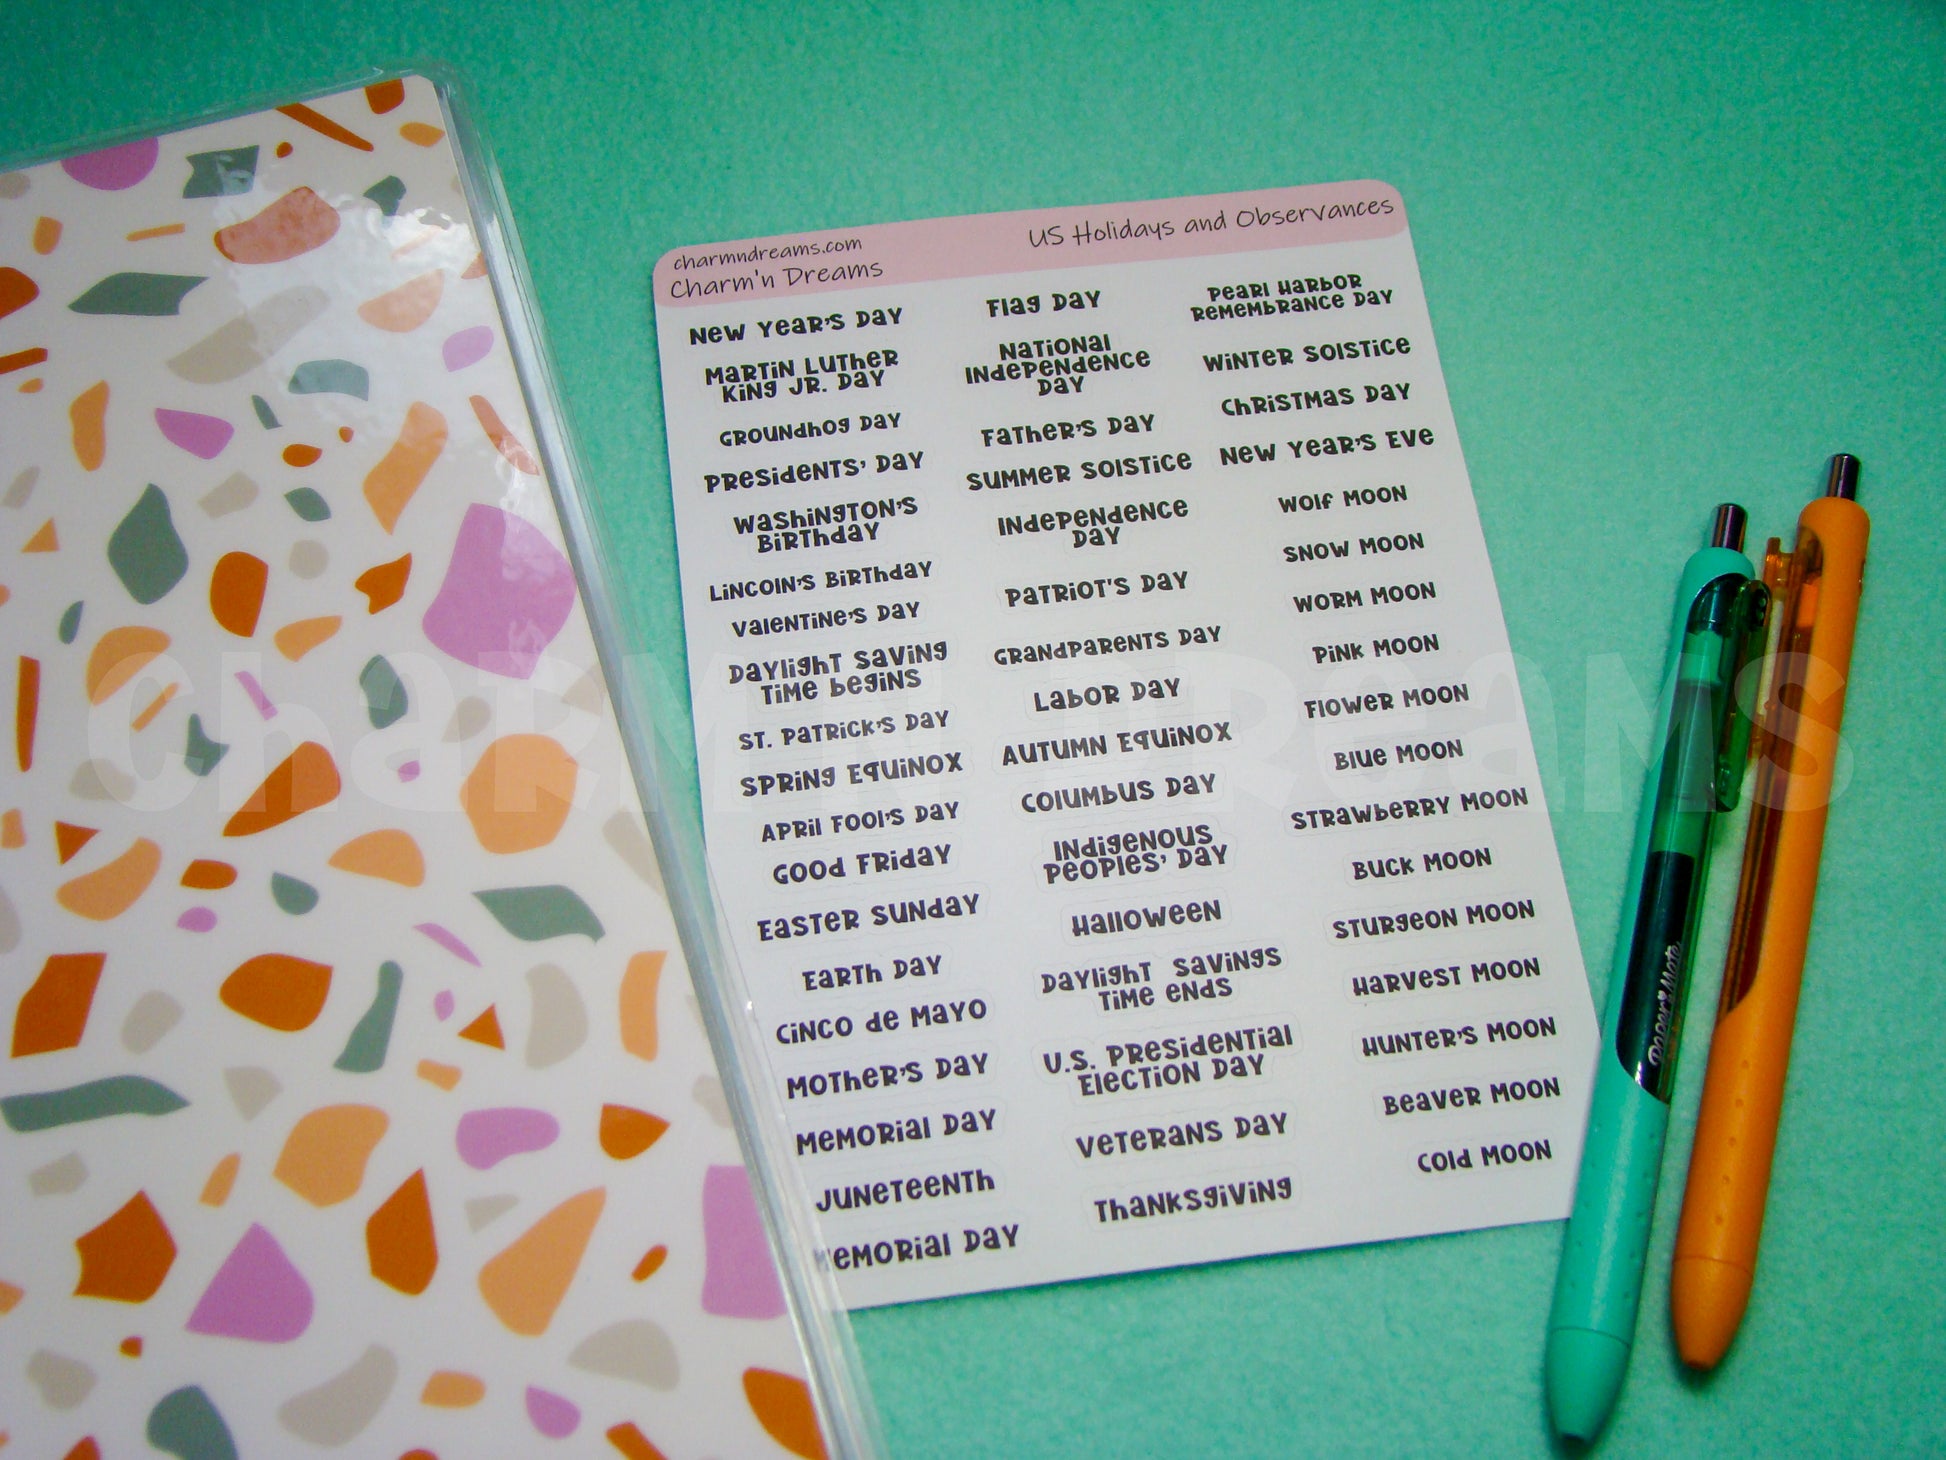 charmndreams.com
Charm'n Dreams
US Holidays and Observances
New Year's Day
Martin Luther
King Jr. Day
Groundhog Day
Presidents' Day
Washington's
Birthday
Lincoln's Birthday
Valentine's Day
Daylight Saving
Time Begins
St. Patrick's Day
Spring Equinox
April Fool's Day
Good Friday
Easter Sunday
Earth Day
Cinco de Mayo
Mother's Day
Memorial Day
Juneteenth
Memorial Day
Flag Day
National
Independence
Day
Father's Day
Summer Solstice
Independence
Day
Patriot's Day
Grandparents Day
Labor Day
Autumn Equinox
Columbus Day
Indigenous
Peoples' Day
Halloween
Daylight Savings
Time Ends
U.S. Presidential
Election Day
Veterans Day
Thanksgiving
Pearl Harbor
Remembrance Day
Winter Solstice
Christmas Day
New Year's Eve
Wolf Moon
Snow Moon
Worm Moon
Pink Moon
Flower Moon
Blue Moon
Strawberry Moon
Buck Moon
Sturgeon Moon
Harvest Moon
Hunter's Moon
Beaver Moon
Cold Moon
Paper Mate
Charm'n Dreams